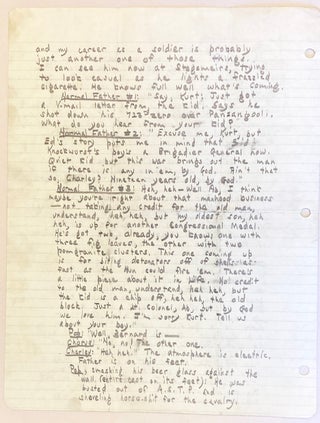 and my career as a soldier is probably
just another one of those things.
I can see him now at Stegemeirs, trying
to look casual as he lights a frazzled
cigarette. He knows full well what's coming.
Normal Father #1: "Say, Kurt; Just got
a V-mail letter from the Kid. Says he
shot down his 723rd zero over
What do you hear from your Kid?"
Normal Father #2: "Excuse me, Kurt, but
Ed's story puts me in mind that
Knockwort's boy's a Brigadier General now.
Quiet Kid but this war brings out the man
if there is any in 'em, by God. Ain't that
so, Charley? Nineteen years old, by God."
Normal Father #3: Heh, heh — Well Ab, I think
maybe you're right about that manhood business
— not taking any credit for the old man,
understand, heh, heh, but my oldest son, heh
heh, is up for another Congressional Medal.
He's got two, already, you know, one with
three fig leaves, the other with two
pomgranite clusters. This one coming up
is for biting detonators off of shells
fast as the Hun could fire 'em. There's
a little piece about it in Life. No credit
to the old man, understand, heh heh, but
the Kid is a chip off, heh heh, the old
block. Just a Lt. Colonel, Ab, but by God
we love him. I'm sorry, Kurt. Tell us
about your boy."
Pop: "Well, Bernard is —
Chorus: "No, no! The other one.
Charley: Heh heh." The atmosphere is electric.
Father is on his feet.
Pop: smashing his beer glass against the
wall. (entire cast on its feet): He was
busted out of A.S.T.P. and is
shoveling horse-shit for the cavalry.